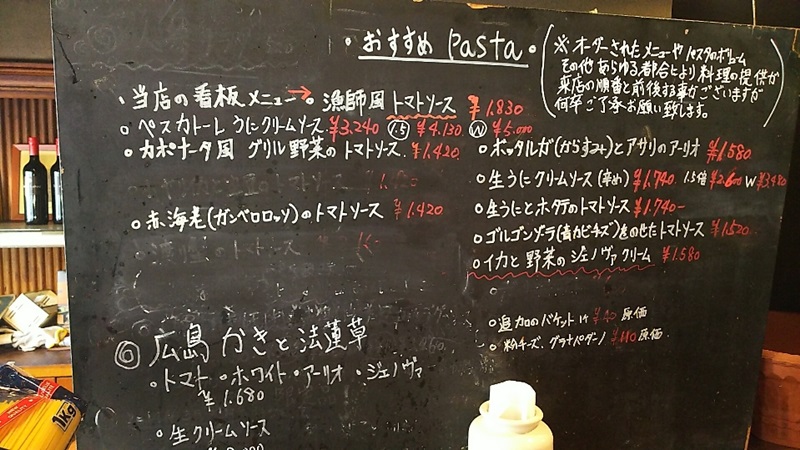 ・おすすめ Pasta・
※ オーダーされたメニューや パスタのボリューム
その他 あらゆる都合により 料理の提供が
来店の順番と前後する事がございますが
何卒ご了承お願い致します。
・当店の看板メニュー→○ 漁師風 トマトソース ¥1.830
○ペスカトーレ うにクリームソース ¥3.240 1.5 ¥4.130 W ¥5.000
○カポナータ風 グリル野菜のトマトソース. ¥1.420.
○赤海老(ガンベロロッソ)のトマトソース ¥1.420
○ボッタルガ(からすみ)とアサリのアーリオ ¥1.580
○生うにクリームソース(辛め) ¥1.740 1.5倍 ¥2.600 W ¥3.480
○生うにとホタテのトマトソース ¥1.740-
○ゴルゴンゾーラ(青カビチーズ)をのせたトマトソース ¥1.520
○イカと野菜のジェノヴァクリーム ¥1.580
○追加のバケット 1ヶ 原価
○粉チーズ、グラナパダーノ ¥110 原価
◎広島 かきと法蓮草
・トマト ・ホワイト ・アーリオ ・ジェノヴァ
¥1.680
・生クリームソース
1Kg